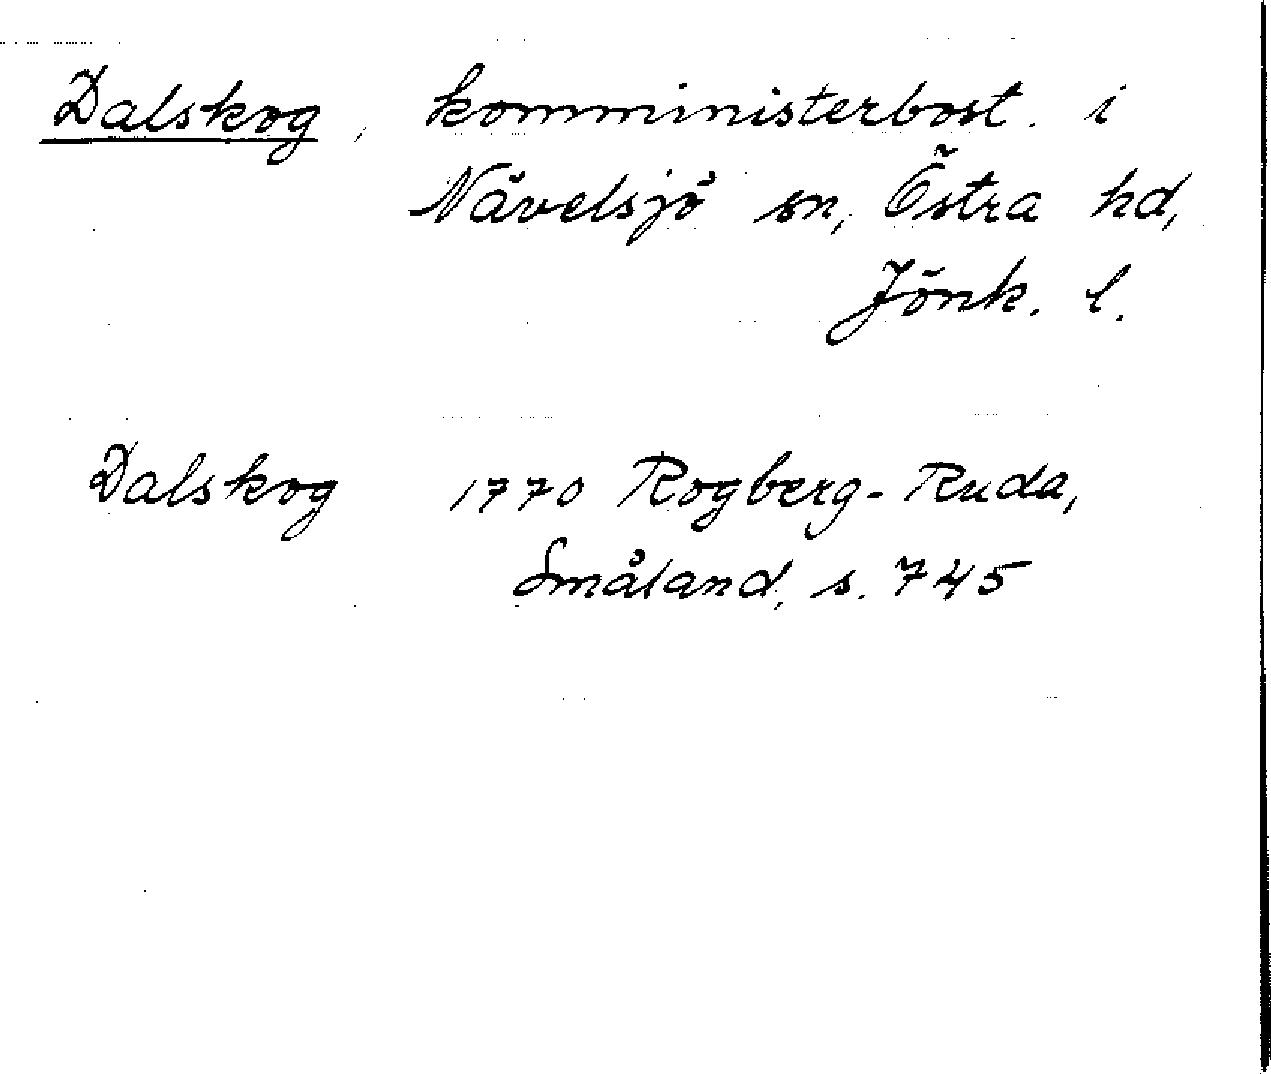 Dalskog, komministerbost. i
Nävelsjö sn, Östra hd,
Jönk. l.
Dalskog 1770 Rogberg-Ruda,
Småland, s. 745